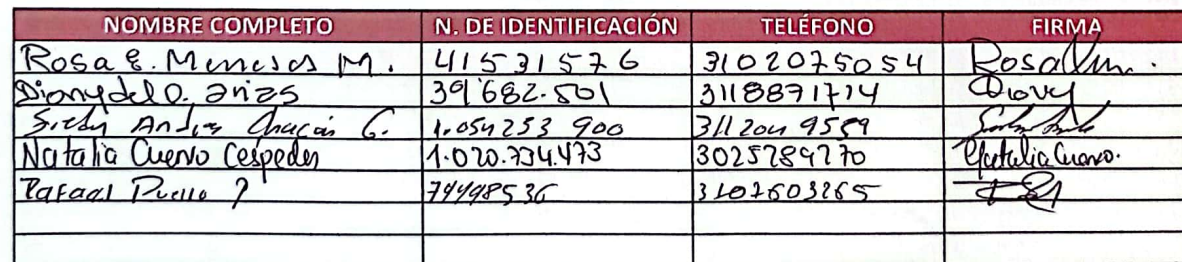 NOMBRE COMPLETO N. DE IDENTIFICACIÓN TELÉFONO FIRMA
Rosa E. Meneses M. 41531576 3102075054 Rosa
39'682.501 3118871714 Diony
Andres Chacón G. 1.054 253 900 311204 9559
Natalia Cuervo Cespedes 1.020.734.473 3025289270 Natalia Cuervo.
Rafael 79498536 3107603265